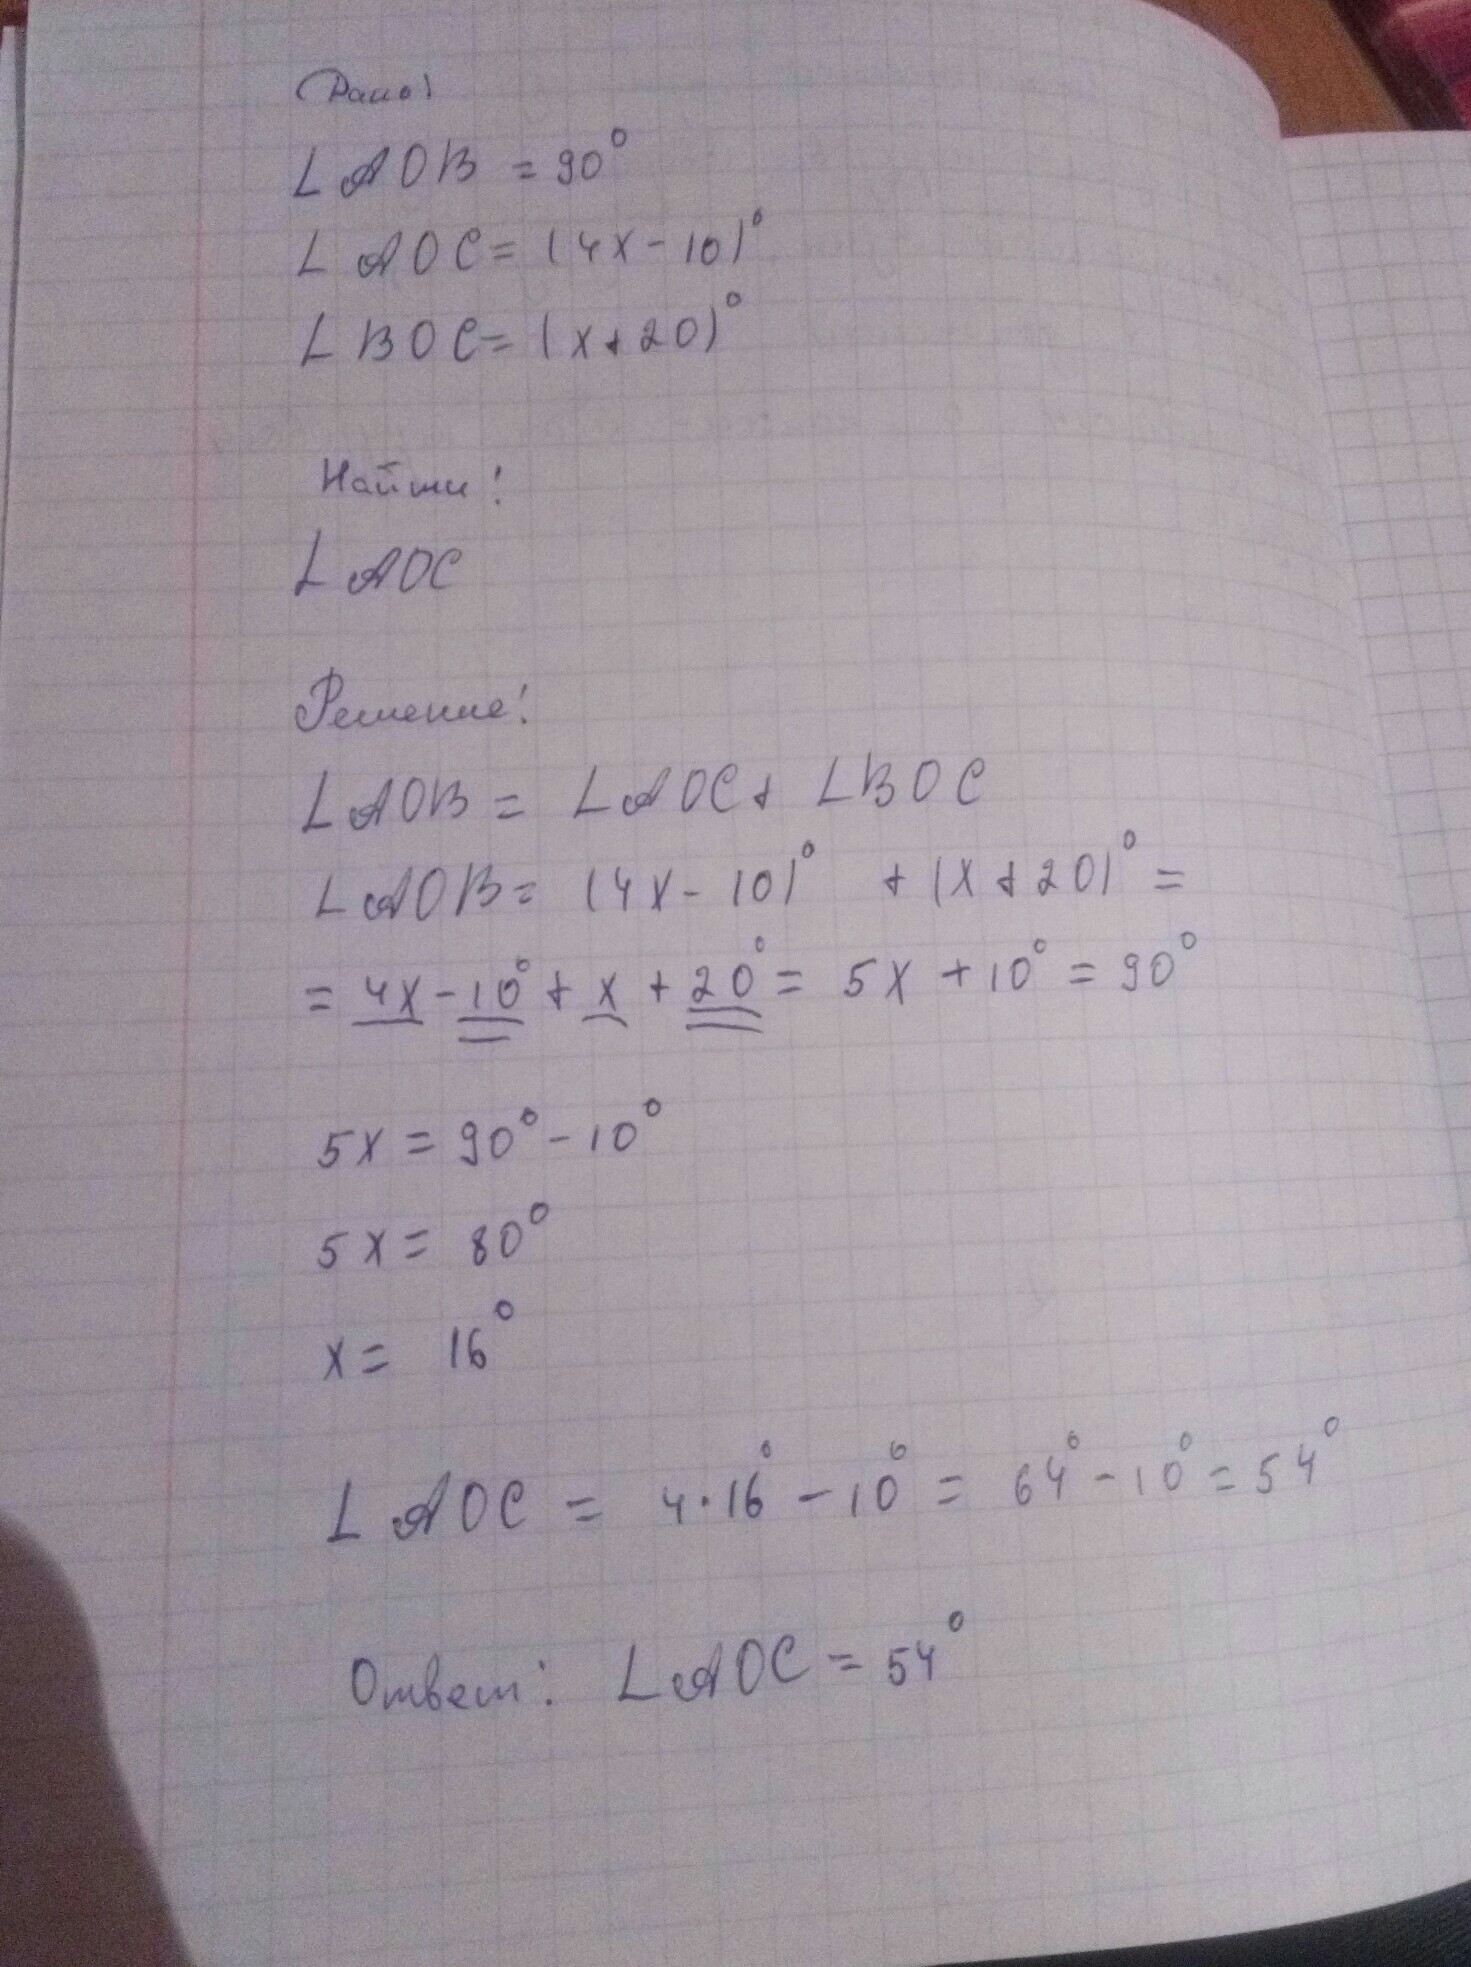 Дано:
∠AOB = 90°
∠AOC = (4x - 10)°
∠BOC = (x + 20)°
Найти:
∠AOC
Решение:
∠AOB = ∠AOC + ∠BOC
∠AOB = (4x - 10)° + (x + 20)° =
= 4x - 10° + x + 20° = 5x + 10° = 90°
5x = 90° - 10°
5x = 80°
x = 16°
∠AOC = 4·16° - 10° = 64° - 10° = 54°
Ответ: ∠AOC = 54°